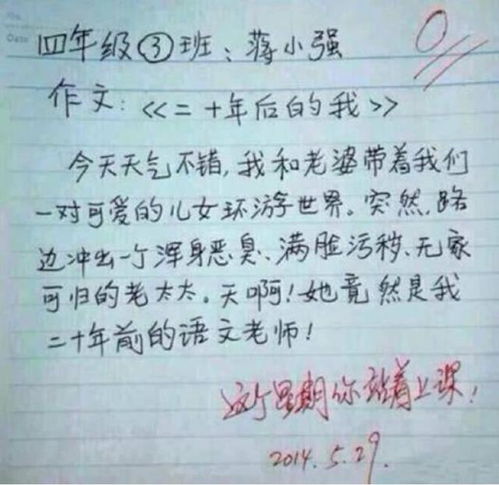 Date
四年级③班：蒋小强
0
作文：<<二十年后的我>>
今天天气不错，我和老婆带着我们
一对可爱的儿女环游世界。突然，路
边冲出一个浑身恶臭、满脸污秽、无家
可归的老太太。天啊！她竟然是我
二十年前的语文老师！
这个星期你站着上课！
2014.5.29.